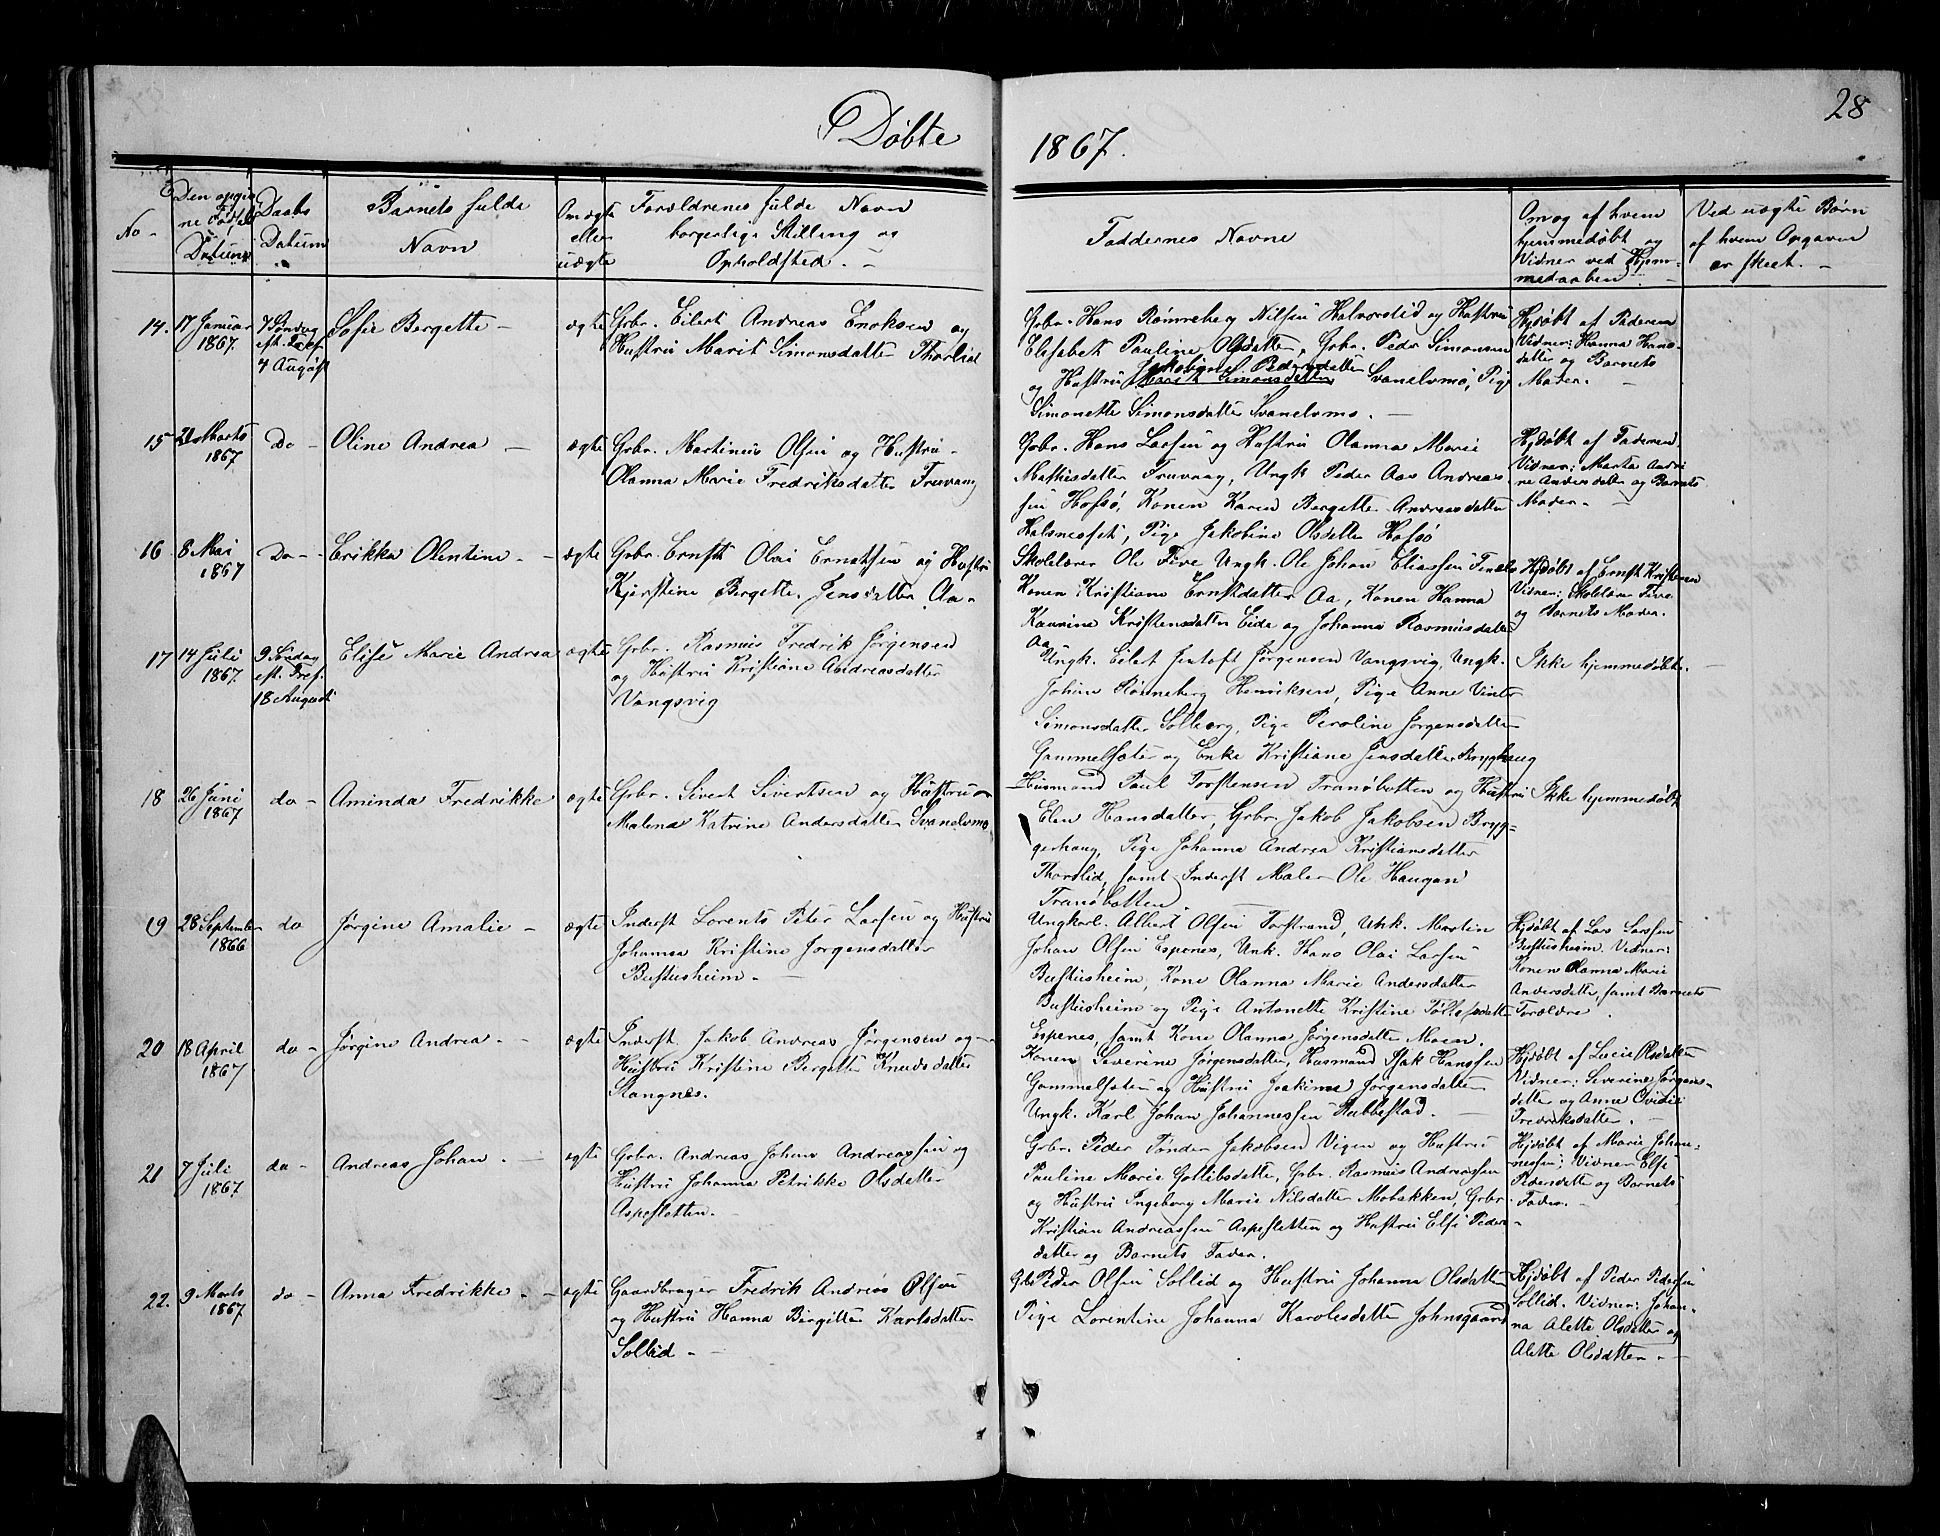 Döbte
1867.
28
No -
Den opgiv
ne Födsels
Datum
Daabs
Datum
Barnets fulde
Navn
Om ægte
eller
uægte
Forældrenes fulde Navn
borgerlige Stilling og
Opholdsted. -
Faddernes Navne
Om og af hvem
hjemmedøbt og
Vidner ved Hjem-
medaaben.
Ved uægte Børn
af hvem Opgaven
er skeet. -
14.
17 Januar
1867.
7 Söndag
eft. Tref.
4 August
Sofie Bergette -
ægte
Grbr. Eilert Andreas Enoksen og
Hustru Marit Simonsdatter Thorlid
Grbr. Hans Rönneberg Nilsen Halvorslid og Hustru
Elisabet Pauline Olsdatter, Grbr. Peder Simonsen
Jakobine Pedersdatter
og Hustru Marit Simonsdatter Svanelvmo, Pige
Simonette Simonsdatter Svanelvmo. -
Hjdöbt af Faderen
Vidner: Hanna Hans-
datter og Barnets
Moder. -
15
21 Marts
1867
Do -
Oline Andrea -
ægte
Grbr. Martinus Olsen og Hustru -
Olanna Marie Fredriksdatter Truvaag
Grbr. Hans Larsen og Hustru Olanna Marie
Mathisdatter Truvaag, Ungk Peder Aas Andreas
sen Hofsö, Konen Karen Bergette Andreasdatter
Halsnesset, Pige Jakobine Olsdatter Hofsö
Hjdöbt af Faderen
Vidner: Marta Andri
ne Andersdatter og Barnets
Moder. -
16
8 Mai
1867
Do -
Erikka Olentine -
ægte
Grbr. Ernst Olai Ernstsen og Hustru
Kjerstine Bergette Jensdatter Aa -
Skolelærer Ole Five Ungk. Ole Johan Eliassen Finsæs
Konen Kristiane Ernstdatter Aa, Konen Hanna
Kaurine Kristensdatter Eide og Johanna Rasmusdatter
Aa
Hjdöbt af Ernst Kristensen
Vidner: Skolelærer Five
og Barnets Moder.
17
14 Juli
1867.
9 Söndag
eft. Tref.
18 August
Elise Marie Andrea
ægte
Grbr. Rasmus Fredrik Jörgensen
og Hustru Kristiane Andreasdatter
Vangsvig
Ungk. Eilert Jentoft Jörgensen Vangsvig, Ungk.
Johan Rönneberg Henriksen, Pige Anne Vinter
Simonsdatter Solberg, Pige Peroline Jörgensdatter
Gammelsæter og Enke Kristiane Jensdatter Brygghaug
Ikke hjemmedöbt. -
18
26 Juni
1867
do -
Aminda Fredrikke
ægte
Grbr. Sivert Sivertsen og Hustru
Malena Katrine Andersdatter Svanelvmo
Husmand Paul Torstensen Tranöbotten og Hustru
Elen Hansdatter, Grbr. Jakob Jakobsen Bryg-
gerhaug, Pige Johanna Andrea Kristiansdatter
Thorslid, samt Inderst Maler Ole Haugan
Tranöbotten.
Ikke hjemmedöbt
19
28 September
1866
do
Jörgine Amalie -
ægte
Inderst Lorents Peter Larsen og Hustru
Johanna Kristine Jörgensdatter
Buftusheim -
Ungkarl. Albert Olsen Torstrand, Unk. Martin
Johan Olsen Espenes, Unk. Hans Olai Larsen
Buftusheim, Kone Olanna Marie Andersdatter
Buftusheim og Pige Antonette Kristine Tollefsdatter
Espenes, samt Kone Olanna Jörgensdatter Moen.
Hjdöbt af Lars Larsen
Buftusheim. Vidner:
Konen Olanna Marie
Andersdatter, samt Barnets
Forældre.
20
18 April
1867
do -
Jörgine Andrea -
ægte
Inderst Jakob Andreas Jörgensen og -
Hustru Kristine Bergitte Knudsdatter
Stangnes.
Konen Severine Jörgensdatter, Husmand Isak Hanssen
Gammelsæter og Hustru Joakime Jörgensdatter
Ungk. Karl Johan Johannessen Rubbestad. -
Hjdöbt af Lucie Olsdatter
Vidner: Severine Jörgens-
datter og Anne Ovidie
Fredriksdatter. -
21
7 Juli
1867
do -
Andreas Johan. -
ægte
Grbr. Andreas Johan Andreassen og
Hustru Johanna Petrikke Olsdatter
Aspesletten. -
Grbr. Peder Tönder Jakobsen Vigen og Hustru
Pauline Marie Gottlibsdatter, Grbr. Rasmus Andreassen
og Hustru Ingeborg Marie Nilsdatter Mobakken, Grbr.
Kristian Andreassen Aspesletten og Hustru Else Peder-
datter og Barnets Fader.
Hjdöbt af Marie Johan-
nessen; Vidner Else
Pedersdatter og Barnets
Fader. -
22.
9 Marts
1867
do -
Anna Fredrikke. -
ægte
Gaardbruger Fredrik Andreas Olsen
og Hustru Hanna Birgitte Karlsdatter
Sollid -
Grbr Peder Olsen Sollid og Hustru Johanna Olsdatter
Pige Lorentine Johanna Karolesdatter Johnsgaard
Hjdöbt af Peder Pedersen
Sollid. Vidner: Johan-
na Alette Olsdatter og
Alette Olsdatter. -